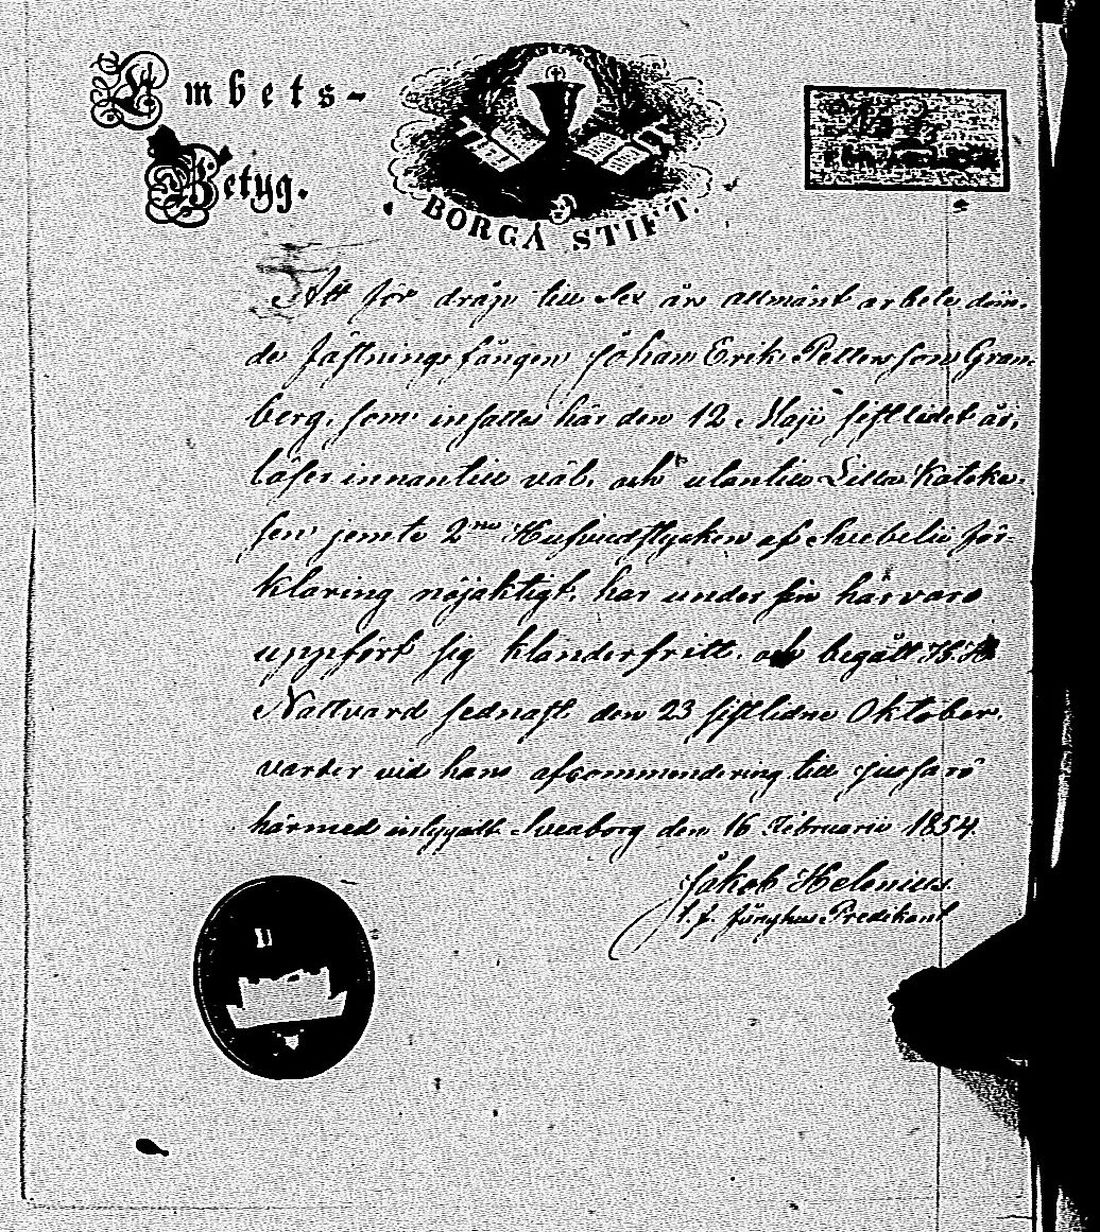 Embets-
Betyg.
BORGÅ STIFT.
Att för dråp till sex års allmänt arbete döm-
de fästnings fången Johan Erik Pettersson Gran-
berg, som insattes här den 12 Maji sistledet år,
läser innantill väl, och utantill Lilla Kateke-
sen jemte 2ne Hufvudstycken af Svebelii för-
klaring nöjaktigt, har under sin härvaro
uppfört sig klanderfritt, och begått H. H.
Nattvard sednast den 23 sistlidne Oktober,
varder vid hans afcommendering till Jussarö
härmed intygadt. Sveaborg den 16 Februarii 1854.
Jakob Helenius
t. f. Predikant